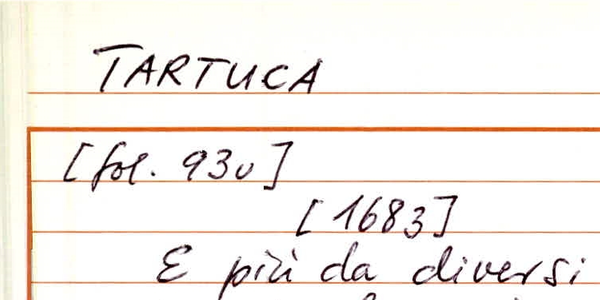 TARTUCA
[fol. 93v]
[1683]
E più da diversi